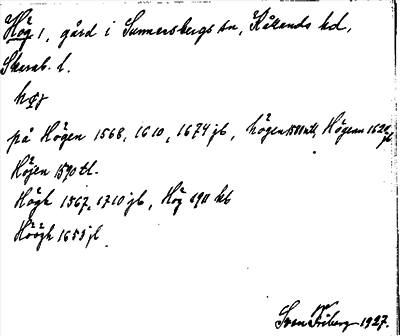 Hög 1, gård i Sunnersbergs sn, Kållands hd,
Skarab. l.
på Högen 1568, 1610, 1674 jb, högen 1581 ntl, Högenn 1624 jb
Höjen 1590 tl.
Högh 1567, 1710 jb, Hög 1911 kb
Höögh 1655 jl
Sven Friberg 1927.